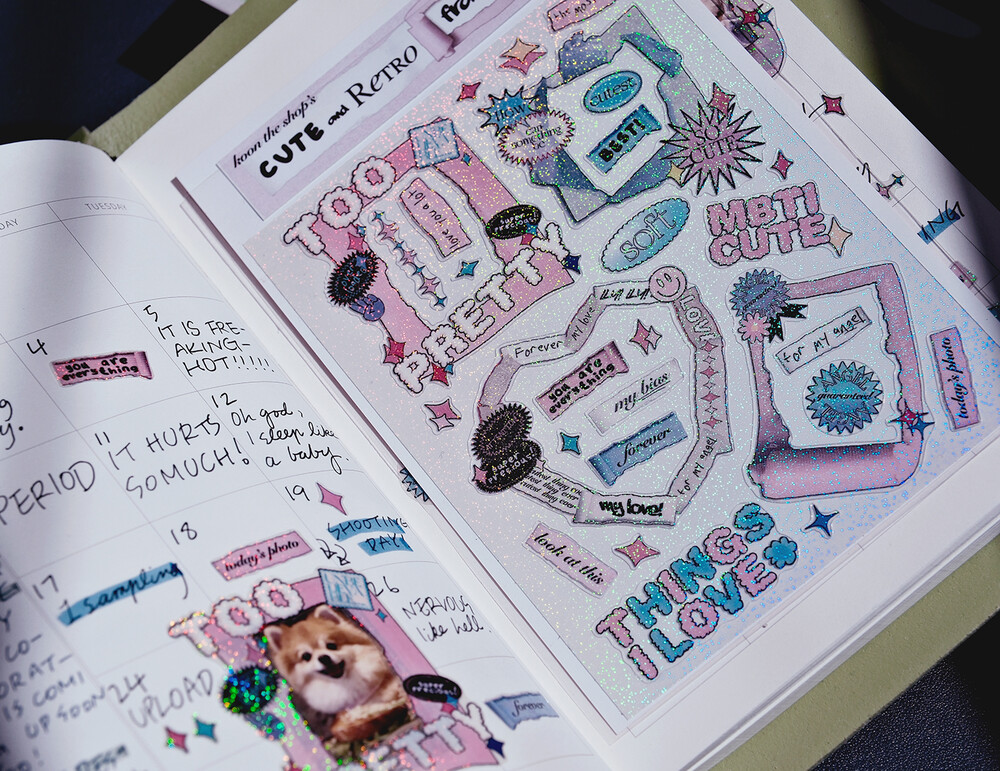 DAY
TUESDAY
4
5
IT IS FRE-
AKING-
HOT!!!!!
you are
everything
y.
PERIOD
11
IT HURTS
SO MUCH!
12
Oh god,
I sleep like
a baby.
17
1 sampling
18
19
SHOOTING
DAY!
today's photo
CO-
ORAT-
IS COMI
UP SOON
24
UPLOAD
26
NERVOUS
like hell!
TOO
SUPER
PRECIOUS!
forever
koon the shop's
CUTE and RETRO
TOO
for you
PRETTY
CUTEST
BEST!
SO
CUTE
SOFT
MBTI
CUTE
Forever
my love
LOVE
you are
everything
my bias
forever
SUPER
PRECIOUS
cutest thing ever
cutest thing ever
cutest thing ever
my love!
for my angel
for my angel
guaranteed
today's photo
look at this
THINGS
I LOVE